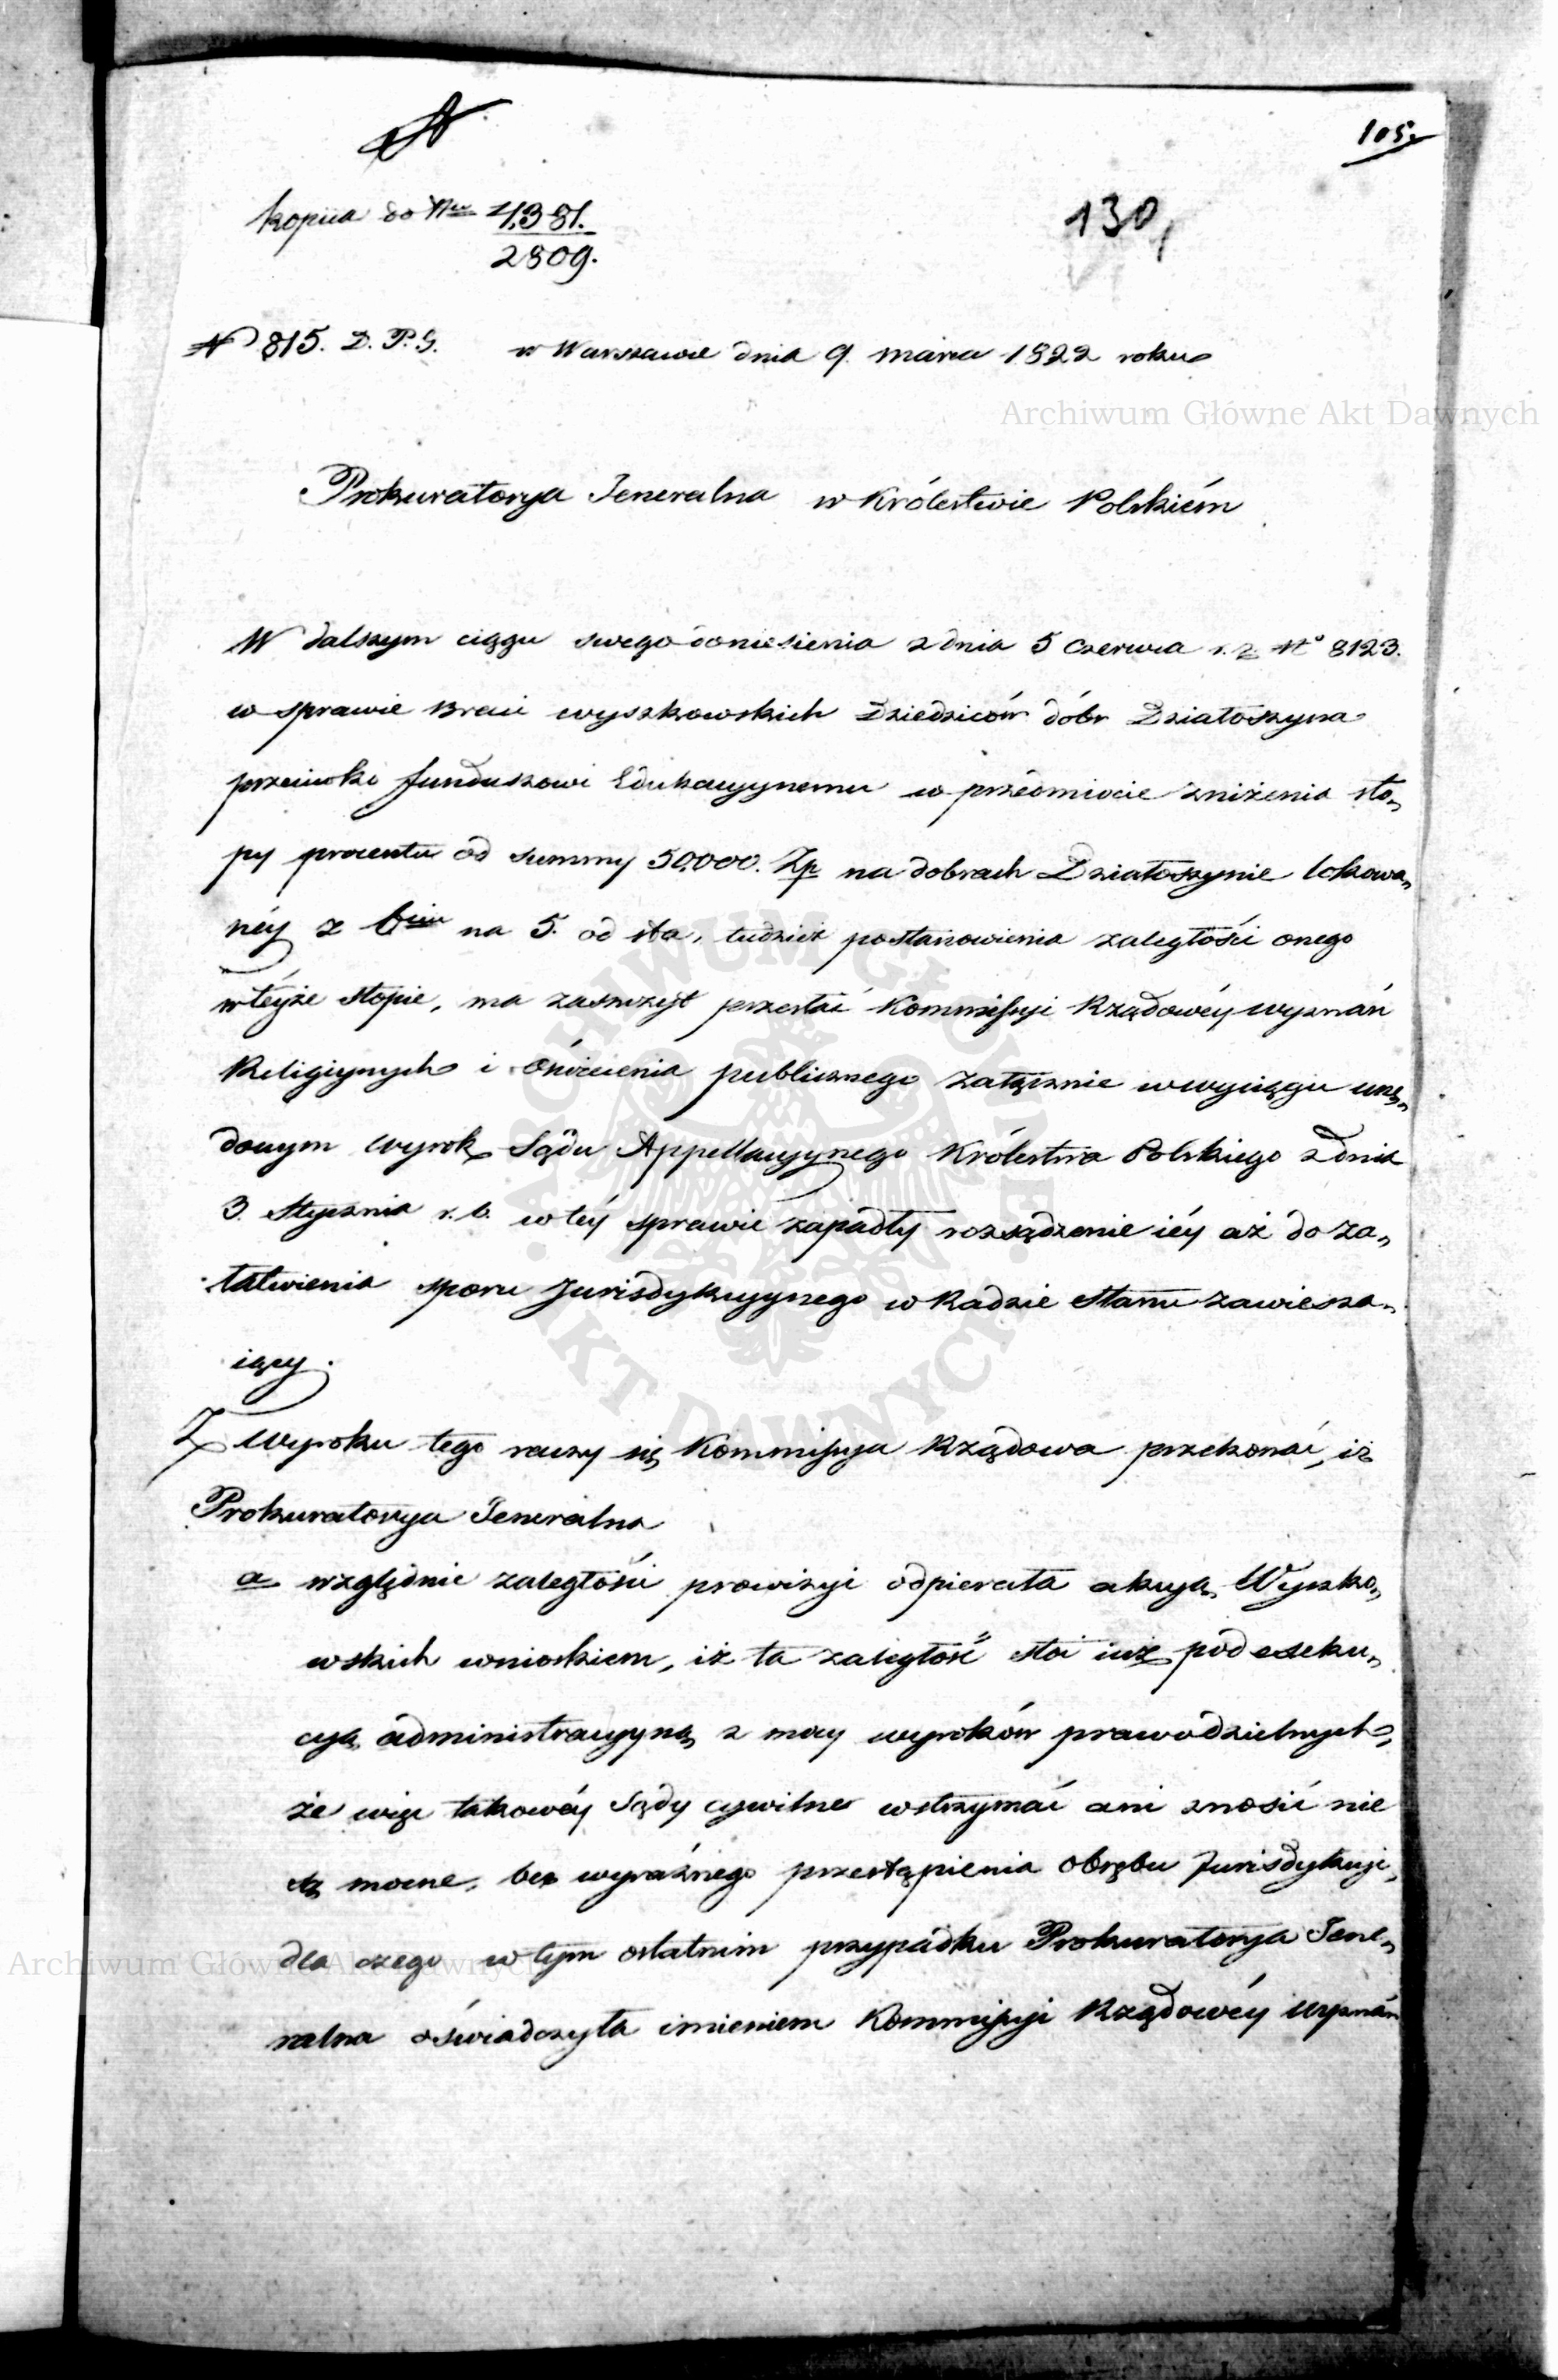 105.
kopiia do Nru 4,381.
2809.
130,
N 815. D. P. G. w Warszawie dnia 9. marca 1822 roku
Archiwum Główne Akt Dawnych
Prokuratorya Jeneralna w Królestwie Polskiém
W dalszym ciągu swego doniesienia z dnia 5 Czerwca r. z. No 8123.
w sprawie Braci wyszkowskich Dziedziców dóbr Działoszyna
przeciwko funduszowi Edukacyynemu w przedmiocie zniżenia sto„
py procentu od summy 50,000. Zp na dobrach Działoszynie lokowa„
néy z 6ciu na 5. od sta, tudzież postanowienia zaległości onego
w téyże stopie, ma zaszczyt przesłać Kommissyi Rządowéy wyznań
Religiynych i oświecenia publicznego załącznie w wyciągu urzę„
dowym wyrok Sądu Appellacyynego Królestwa Polskiego z dnia
3. Stycznia r. b. w téy sprawie zapadły rozsądzenie iéy aż do za„
łatwienia sporu Jurisdykcyynego w Radzie Stanu zawiesza„
iący.
Z wyroku tego raczy się Kommissya Rządowa przekonać, iż
Prokuratorya Jeneralna
a względnie zaległości prowizyi odpierała akcyą Wyszko„
wskich wnioskiem, iż ta zaległość stoi iuż pod exeku„
cyą administracyyną z mocy wyroków prawodzielnych,
że więc takowéy Sądy cywilne wstrzymać ani znosić nie
są mocne, bez wyraźnego przestąpienia obrębu Jurisdykcyi,
dla czego w tym ostatnim przypadku Prokuratorya Jene„
ralna oświadczyła imieniem Kommissyi Rządowéy wyznań
Archiwum Główne Akt Dawnych
ARCHIWUM GŁÓWNE AKT DAWNYCH